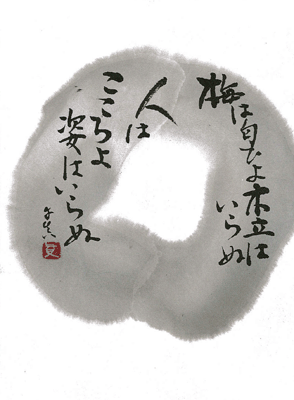 梅は匂よ木立は
いらぬ
人は
こころよ
姿はいらぬ